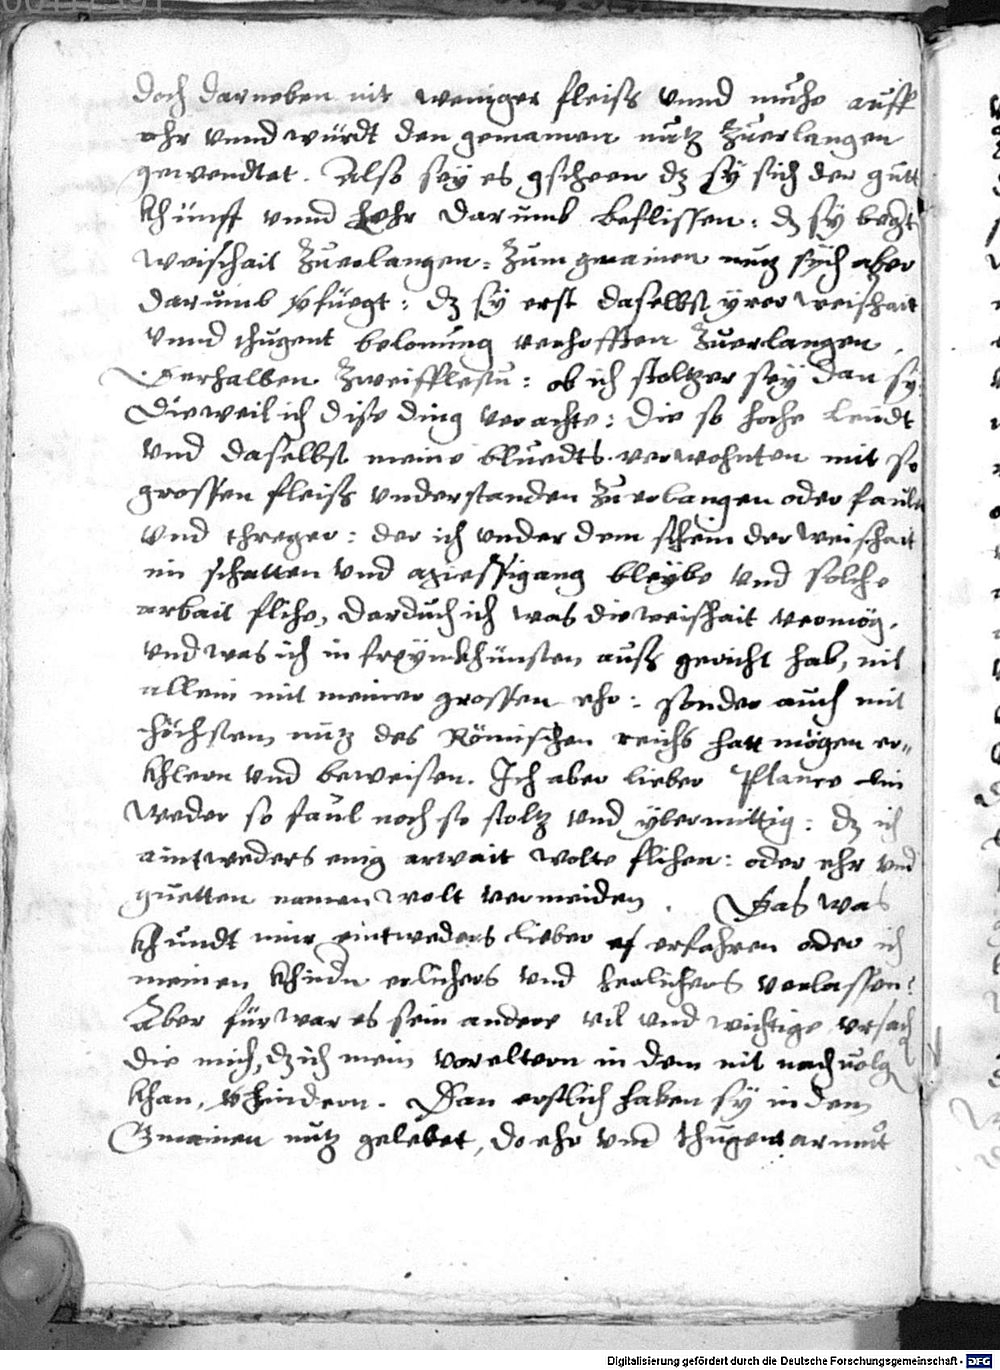 doch darneben nit weniger fleiss vnnd muhe auff
ehr vnnd würdt den gemainen nutz zuerlangen
gewendtet. Also sey es gscheen dz sy sich der gutt
khünst vnnd lehr darumb beflissen: dz sy
weishait zuerlangen: zum gmainen nutz sych aber
darumb gfüegt: dz sy erst daselbst yrer weishait
vnnd thugent belonung verhofften zuerlangen.
Derhalben zweifflestu: ob ich stoltzer sey dan sy
Dieweil ich dise ding verachte: die so hoche leudt
vnd daselbst meine bluedts verwohnten mit so
grossen fleiss vnderstanden zuerlangen oder fauler
vnd threger: der ich vnder dem schein der weishait
im schatten vnd miessigang bleybe vnd solche
arbait flihe, dardurch ich was die weishait vermög,
vnd was ich in freyen khünsten auss gericht hab, nit
allein mit meiner grossen ehr: sonder auch mit
höchstem nutz des Römischen reichs hatt mögen er-
khlern vnd beweisen. Ich aber lieber Plance bin
weder so faul noch so stoltz vnd ybermittig: dz ich
aintweders enig arwait wolte flihen: oder ehr vnd
guetten namen wolt vermeiden. Das was
khundt mir eintweders lieber erfahren oder ich
meinen khindn erlichers vnd herlichers verlassen?
Aber fürwar es sein andere vil vnd wichtige vrsach
die mich, dz ich mein voreltern in dem nit nachuolg
khan, vhindern. Dan erstlich haben sy in dem
Gmainen nutz gelebet, do ehr vnd thugent armut
Digitalisierung gefördert durch die Deutsche Forschungsgemeinschaft - DFG